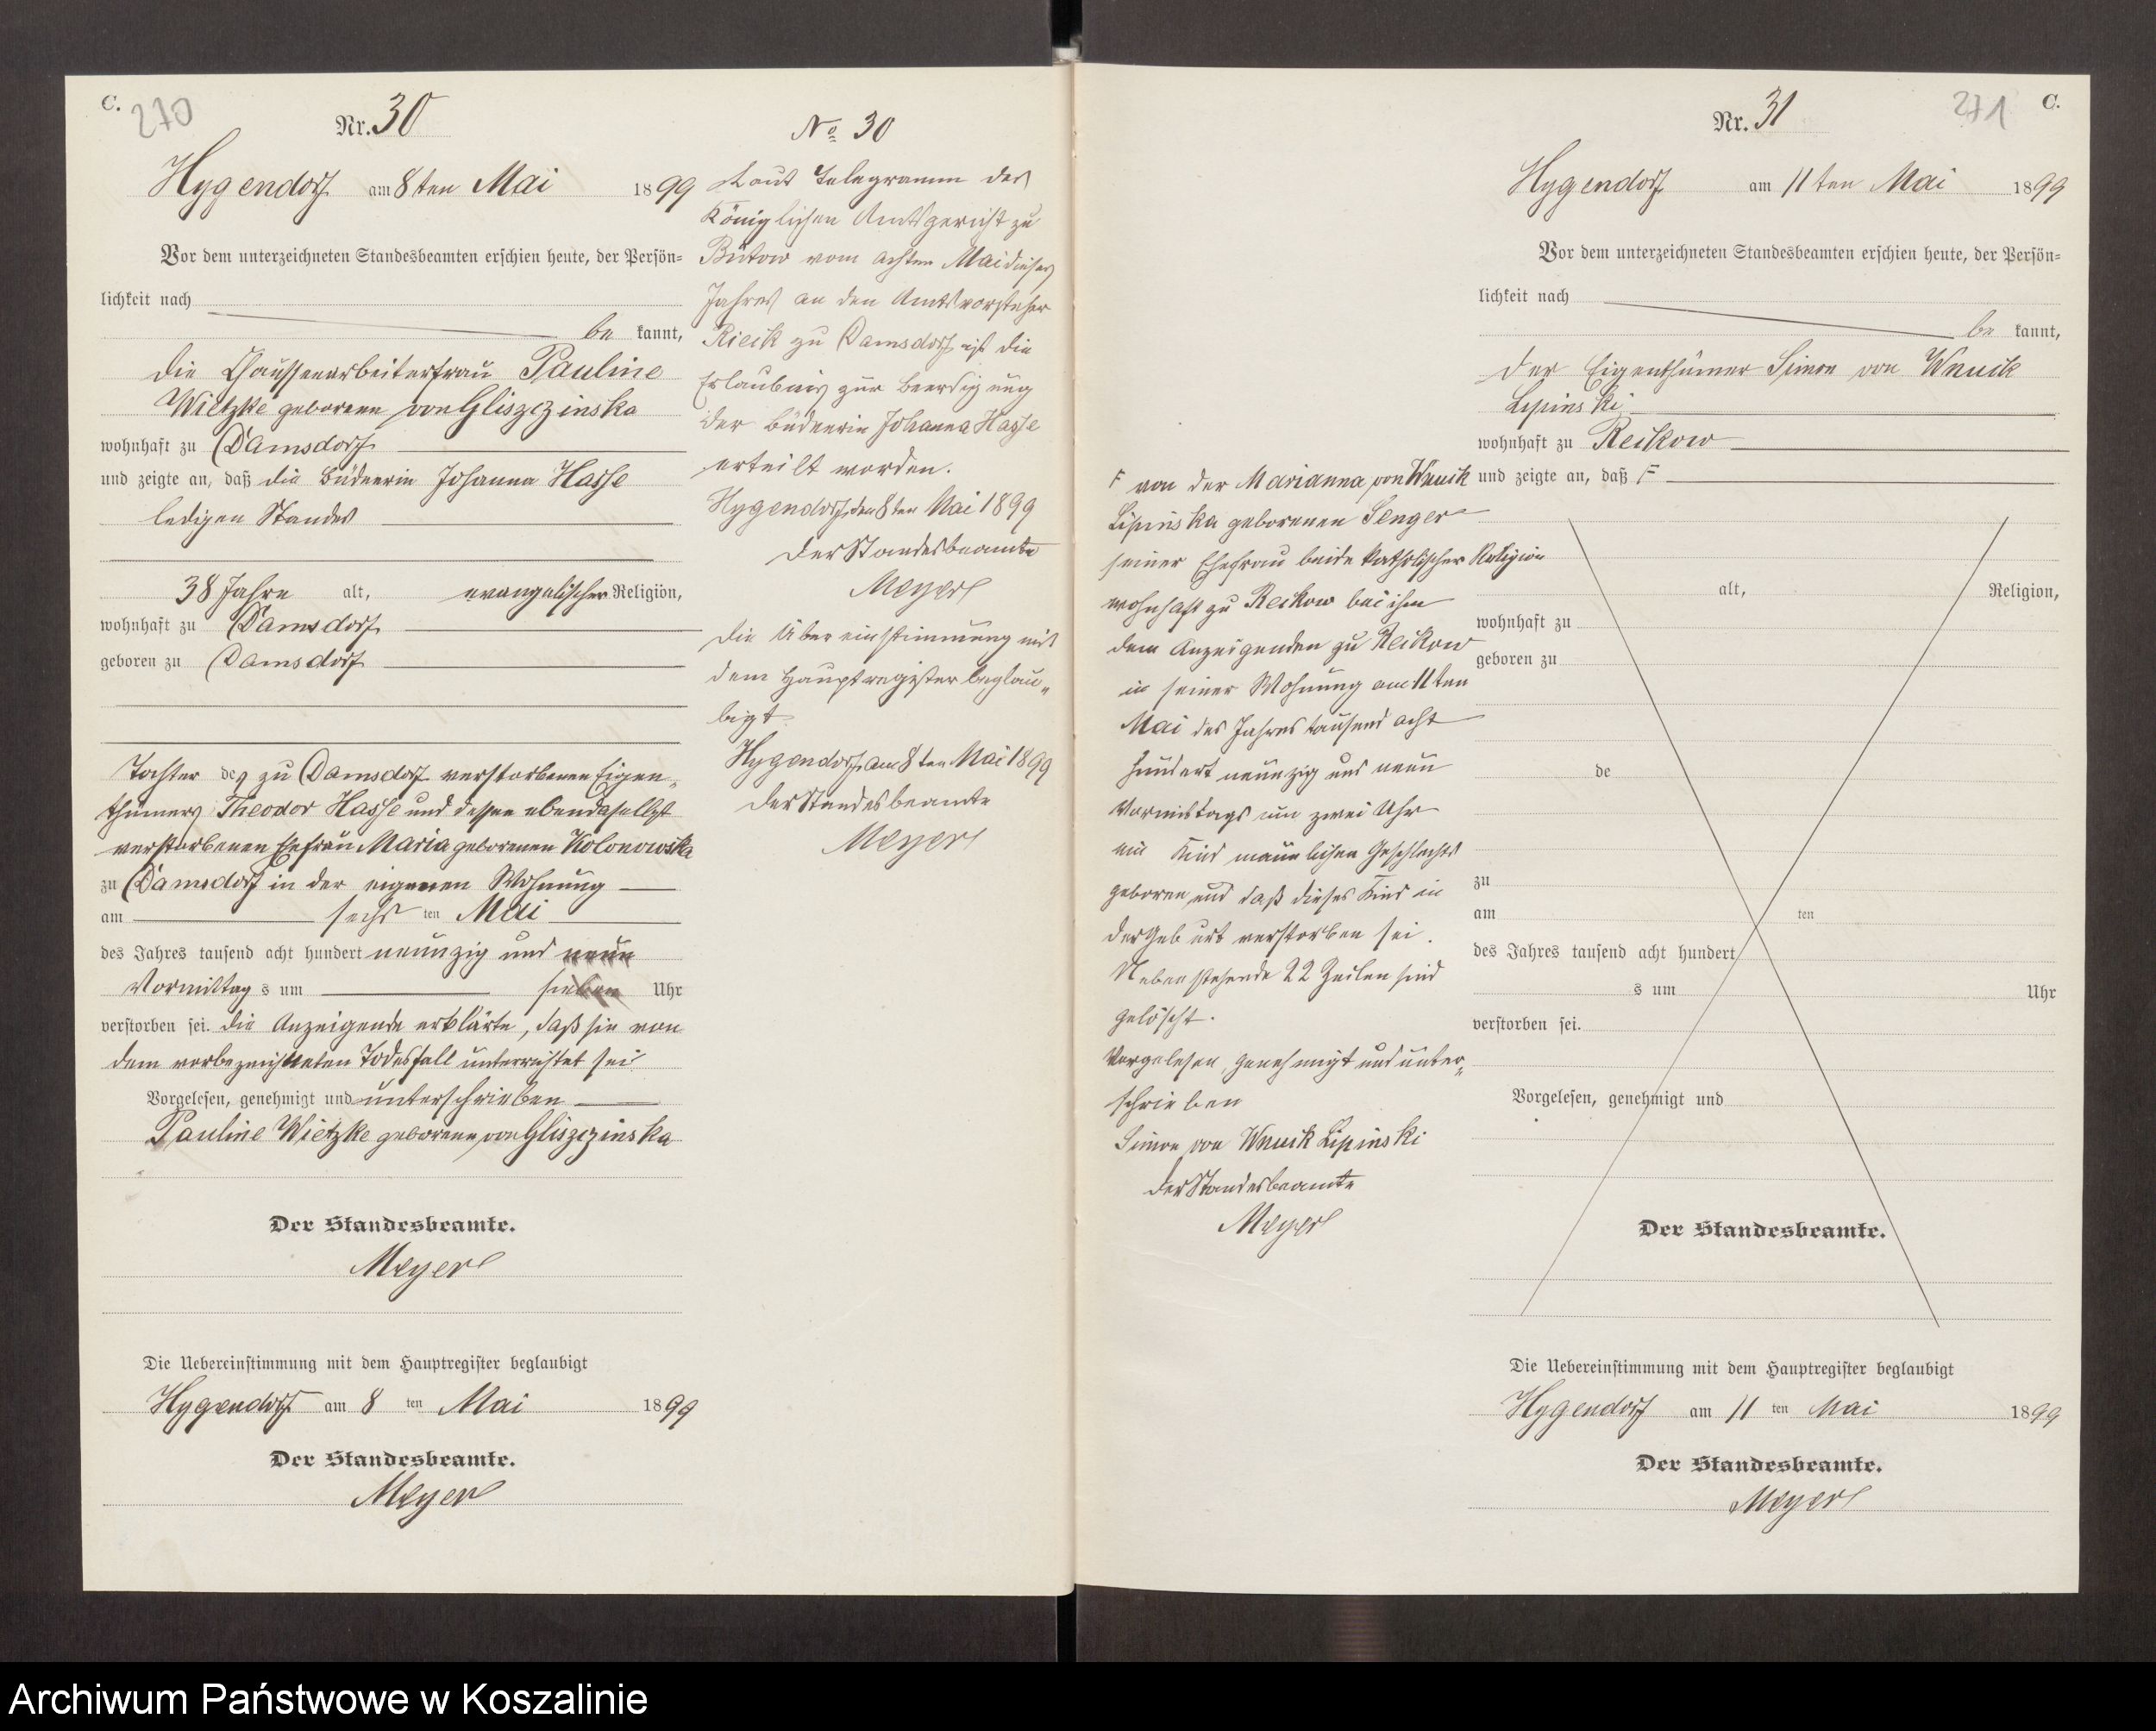 C. 270
Nr. 30
Hygendorf am 8ten Mai 1899
Vor dem unterzeichneten Standesbeamten erschien heute, der Persön=
lichkeit nach
be kannt,
die Chausseearbeiterfrau Pauline
Wietzke geborene von Gliszczinska
wohnhaft zu Damsdorf
und zeigte an, daß die Büdnerin Johanna Hasse
ledigen Standes
38 Jahre alt, evangelischer Religion,
wohnhaft zu Damsdorf
geboren zu Damsdorf
Tochter des zu Damsdorf verstorbenen Eigen„
thümers Theodor Hasse und dessen ebendaselbst
verstorbenen Ehefrau Maria geborenen Kolonowska
zu Damsdorf in der eigenen Wohnung
am sechs ten Mai
des Jahres tausend acht hundert neunzig und neun
Vormittag s um sieben Uhr
verstorben sei. die Anzeigende erklärte, daß sie von
dem vorbezeichneten Todesfall unterrichtet sei
Vorgelesen, genehmigt und unterschrieben
Pauline Wietzke geborene von Gliszczinska
Der Standesbeamte.
Meyer
Die Uebereinstimmung mit dem Hauptregister beglaubigt
Hygendorf am 8 ten Mai 1899
Der Standesbeamte.
Meyer
No 30
Laut Telegramm des
Königlichen Amtsgericht zu
Bütow vom achten Mai dieses
Jahres an den Amtsvorsteher
Rieck zu Damsdorf ist die
Erlaubnis zur Beerdigung
der Büdnerin Johanna Hasse
erteilt worden.
Hygendorf, den 8ten Mai 1899
der Standesbeamte
Meyer
die Übereinstimmung mit
dem Hauptregister beglau„
bigt
Hygendorf am 8ten Mai 1899
der Standesbeamte
Meyer
271 C.
Nr. 31
Hygendorf am 11ten Mai 1899
Vor dem unterzeichneten Standesbeamten erschien heute, der Persön=
lichkeit nach
be kannt,
der Eigenthümer Simon von Wnuck
Lipinski
wohnhaft zu Reckow
und zeigte an, daß F
F von der Marianna von Wnuck
Lipinska geborenen Senger
seiner Ehefrau beide katholischer Religion
wohnhaft zu Reckow bei ihm
dem Anzeigenden zu Reckow
in seiner Wohnung am 11ten
Mai des Jahres tausend acht
hundert neunzig und neun
Vormittags um zwei Uhr
ein Kind männlichen Geschlechts
geboren, und daß dieses Kind in
der Geburt verstorben sei.
Nebenstehende 22 Zeilen sind
gelöscht.
Vorgelesen, genehmigt und unter„
schrieben
Simon von Wnuck Lipinski
der Standesbeamte
Meyer
alt, Religion,
wohnhaft zu
geboren zu
de
zu
am ten
des Jahres tausend acht hundert
s um Uhr
verstorben sei.
Vorgelesen, genehmigt und
Der Standesbeamte.
Die Uebereinstimmung mit dem Hauptregister beglaubigt
Hygendorf am 11 ten Mai 1899
Der Standesbeamte.
Meyer
Archiwum Państwowe w Koszalinie